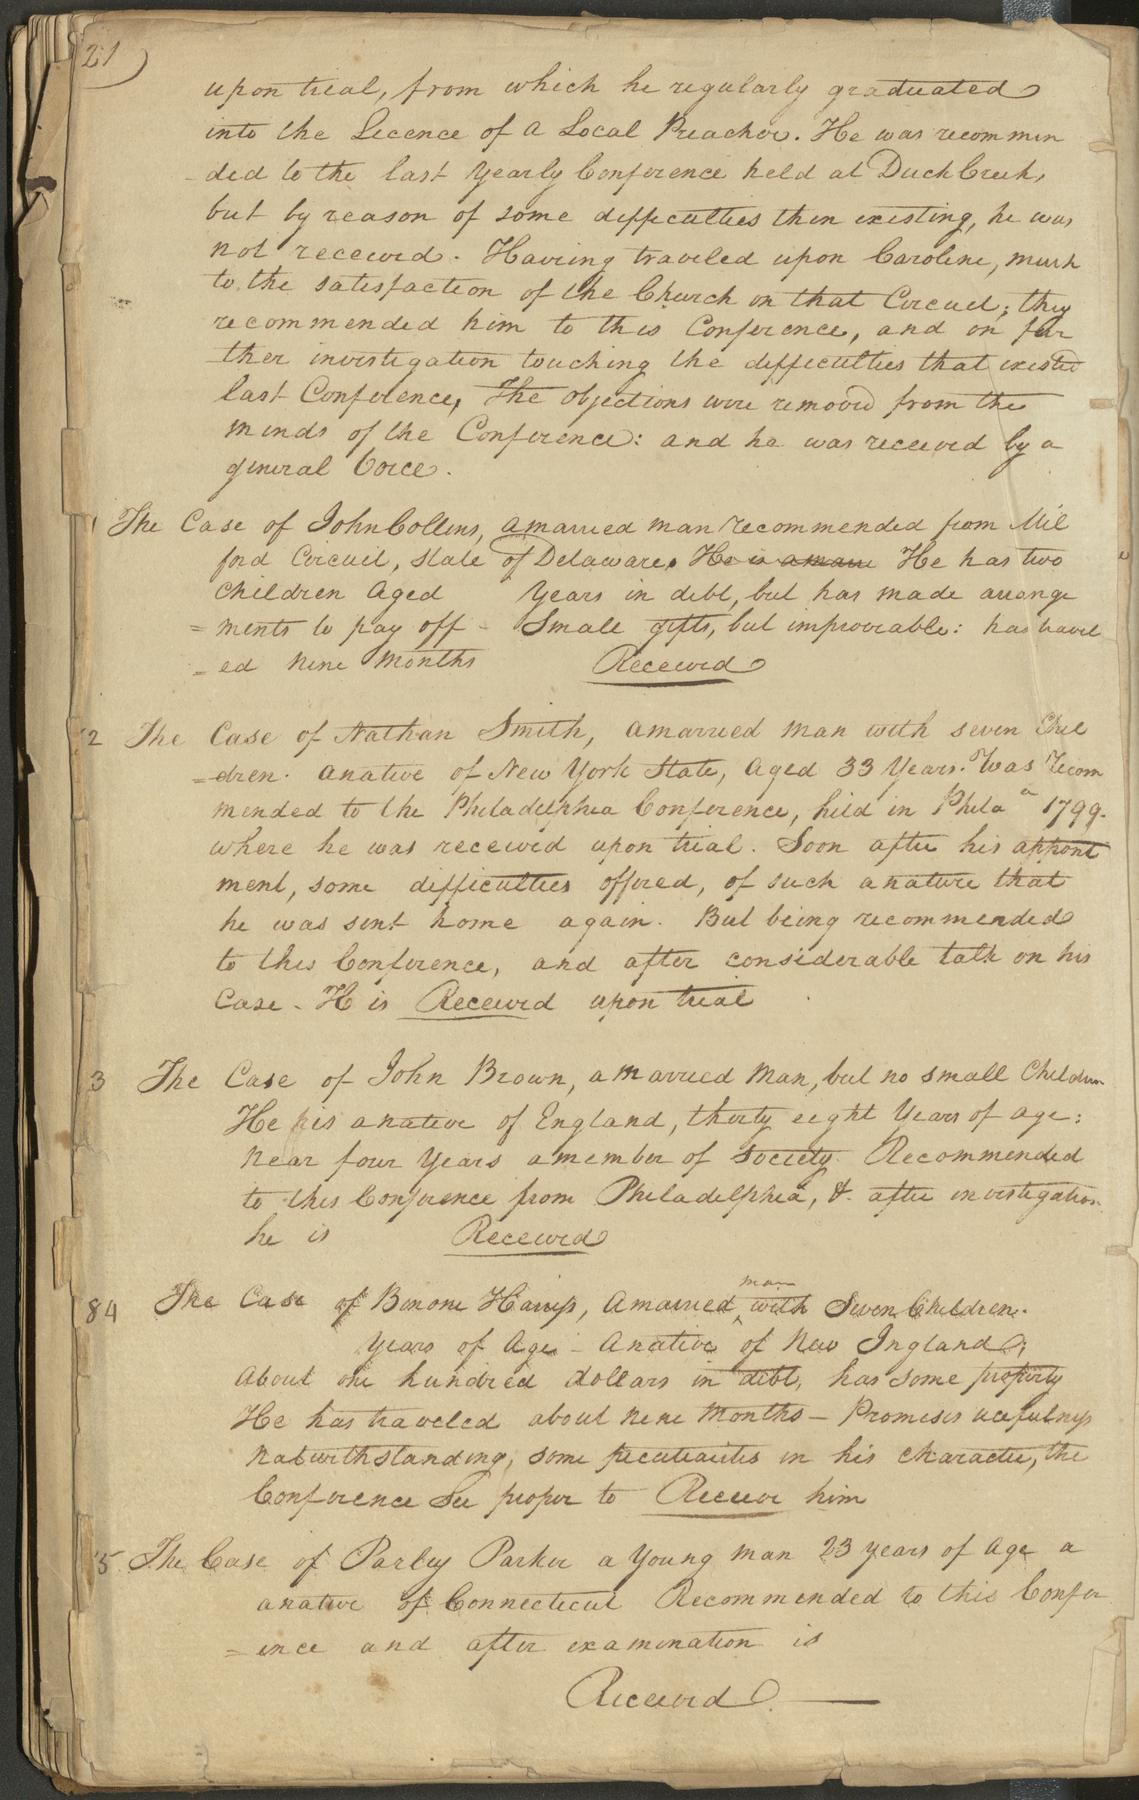 21
upon trial, from which he regularly graduated
into the Licence of a Local Preacher. He was recommen
-ded to the last Yearly Conference held at Duck Creek,
but by reason of some difficulties then existing, he was
not received. Having traveled upon Caroline, much
to the satisfaction of the Church on that Circuit; they
recommended him to this Conference, and on fur
ther investigation touching the difficulties that existed
last Conference, The objections were removed from the
minds of the Conference: and he was received by a
general Voice.
1 The Case of John Collins, a married man recommended from Mil
ford Circuit, State of Delaware. He is a man He has two
Children Aged Years in debt, but has made arrange
=ments to pay off - Small gifts, but improveable: has travel
=ed nine Months Received
2 The Case of Nathan Smith, a married man with seven Chil
=dren. a native of New York State, Aged 33 Years. Was Recom
mended to the Philadelphia Conference, held in Phila a 1799.
where he was received upon trial. Soon after his appoint
ment, some difficulties offered, of such a nature that
he was sent home again. But being recommended
to this Conference, and after considerable talk on his
Case - He is Received upon trial
3 The Case of John Brown, a married Man, but no small Children
He is a native of England, thirty eight Years of age:
Near four Years a member of Society. Recommended
to this Conference from Philadelphia, & after investigation
he is Received
84 The Case of Benoni Harris, a married man with Seven Children.
Years of Age - A native of New Ingland;
About one hundred dollars in debt, has some property
He has traveled about nine Months - Promises usefulness
Natwithstanding, some peculiarities in his Character, the
Conference See proper to Receive him
5 The Case of Parley Parker a Young man 23 years of Age a
a native of Connecticut Recommended to this Confer
=ence and after examination is
Received.